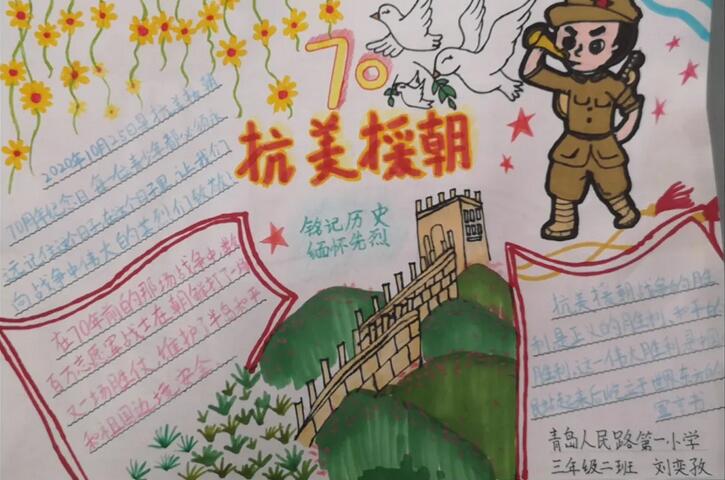 70
抗美援朝
铭记历史
缅怀先烈
2020年10月25日是抗美援朝
70周年纪念日,每一位青少年都必须永
远记住这个日子,在这个日子里,让我们
向战争中伟大的英烈们致敬。
在70年前的那场战争中,数
百万志愿军战士在朝鲜打了一场
又一场胜仗,维护了半岛和平
和祖国边境安全
抗美援朝战争的胜
利是正义的胜利、和平的
胜利,这一伟大胜利
站起来后屹立于世界东方的
宣言书
青岛人民路第一小学
三年级二班 刘奕孜